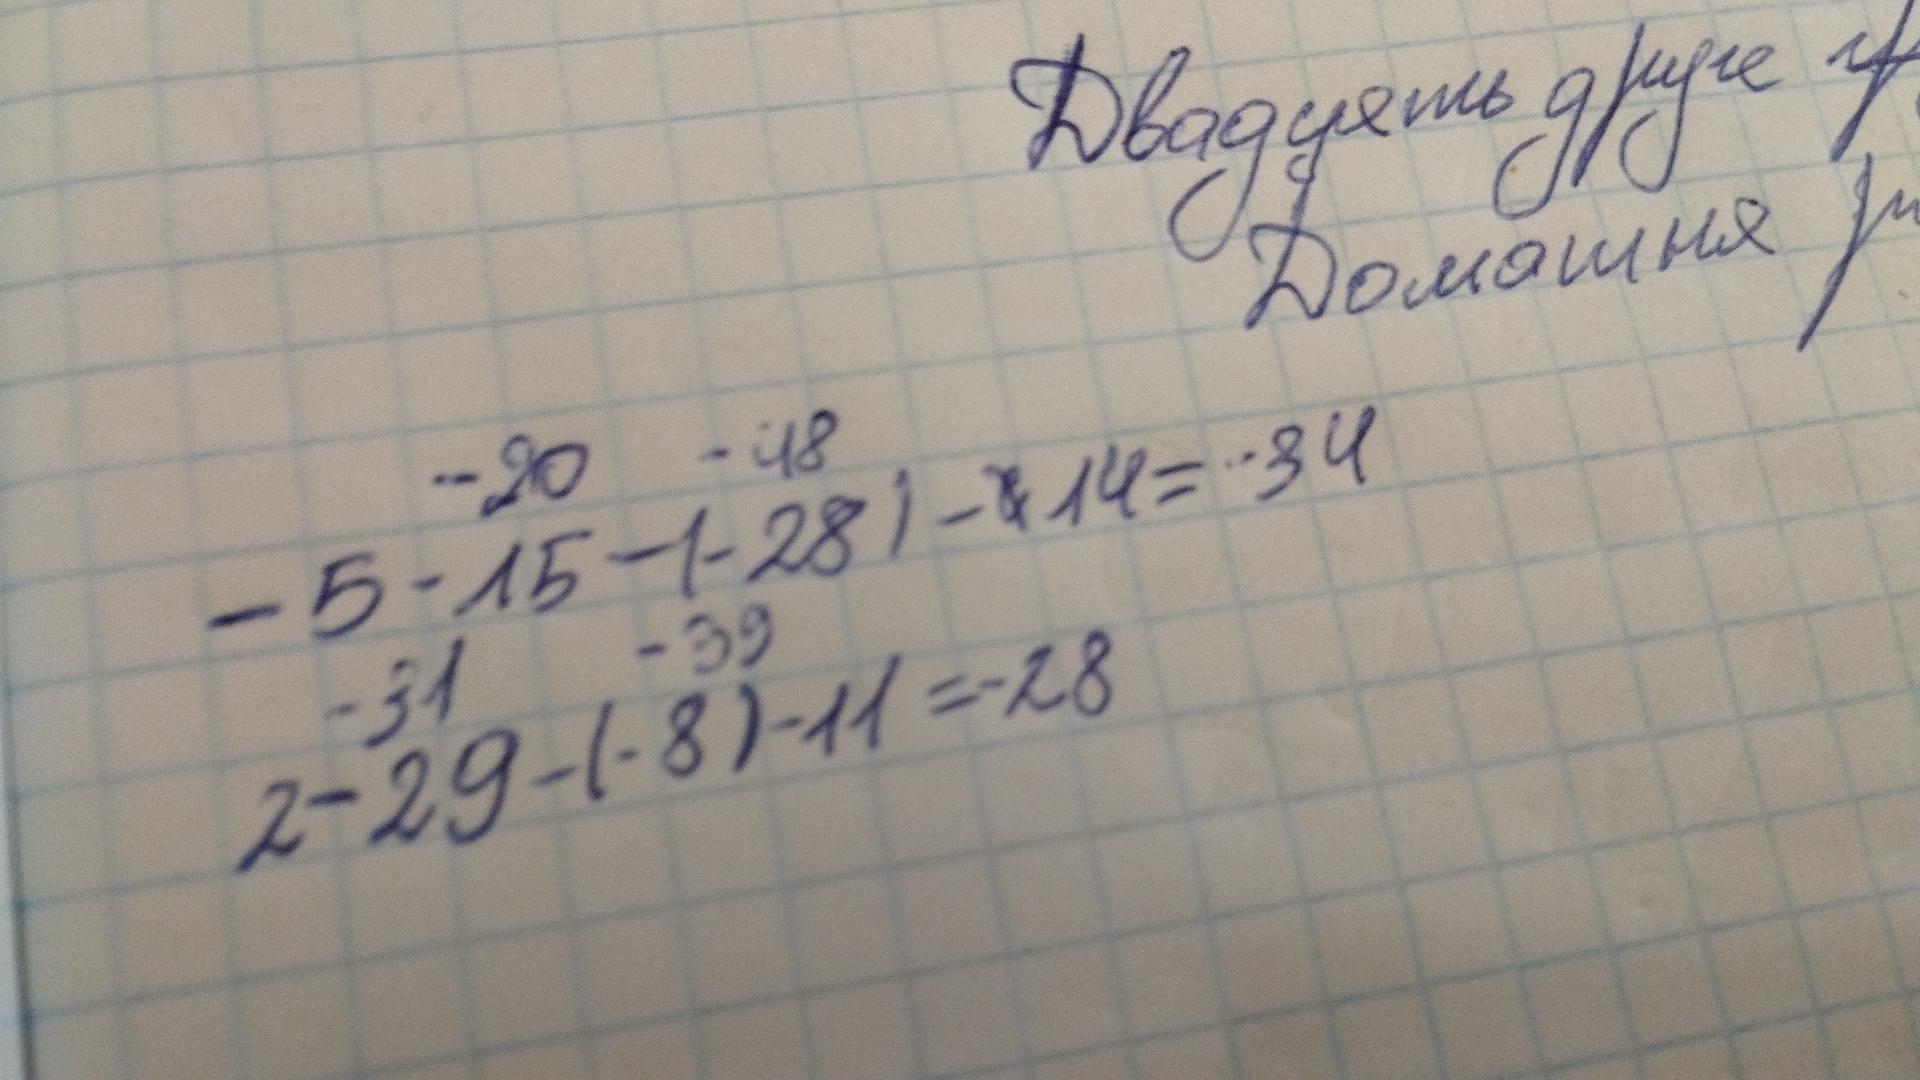 Двадцять друге
Домашня
-20 -48
-5-15-(-28)-14=-34
-31 -39
2-29-(-8)-11=-28